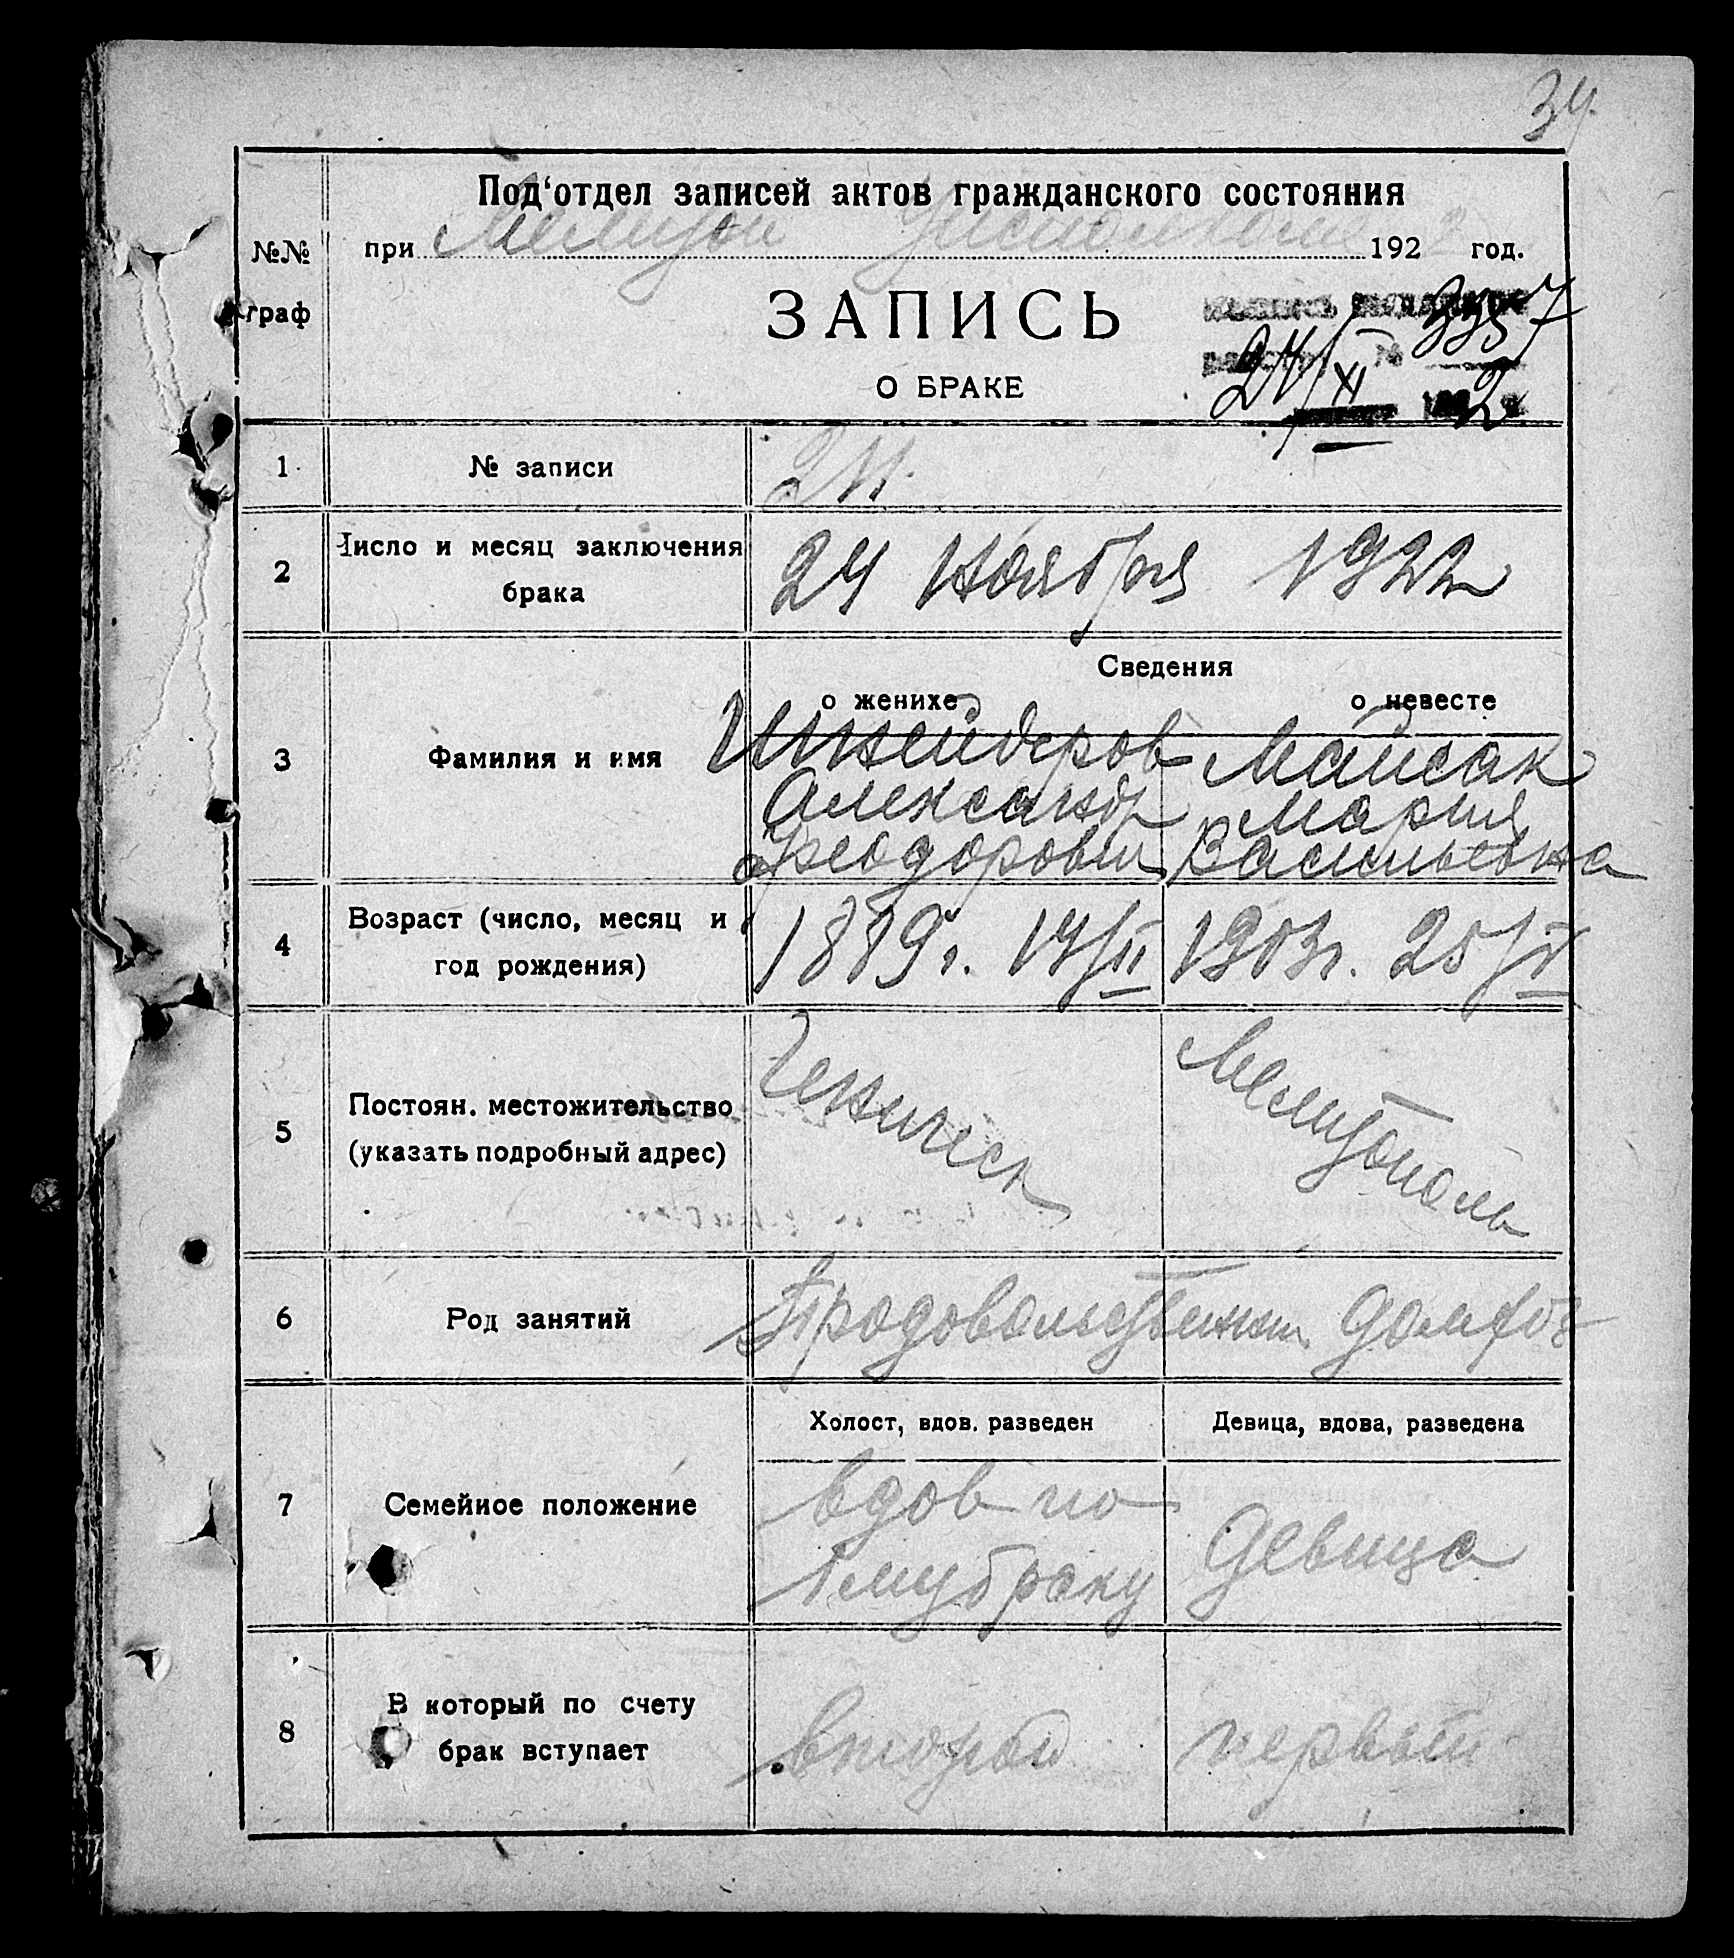 34
Под‘отдел записей актов гражданского состояния
№№ граф
при Мелитоп 192 год.
ЗАПИСЬ
О БРАКЕ
3357
24/XI 2
1. № записи
2 Число и месяц заключения брака 24 Ноября 1922
Сведения
о женихе о невесте
3 Фамилия и имя
Шнейдеров Майсак
Александр Мария
Феодорович Васильевна
4 Возраст (число, месяц и год рождения) 1889г. 14/II 1903г. 25/V
5 Постоян. местожительство (указать подробный адрес) Геническ Мелитополь
6 Род занятий
7 Семейное положение
Холост, вдов. разведен Девица, вдова, разведена
вдов по
1му браку Девица
8 В который по счету брак вступает второй первый